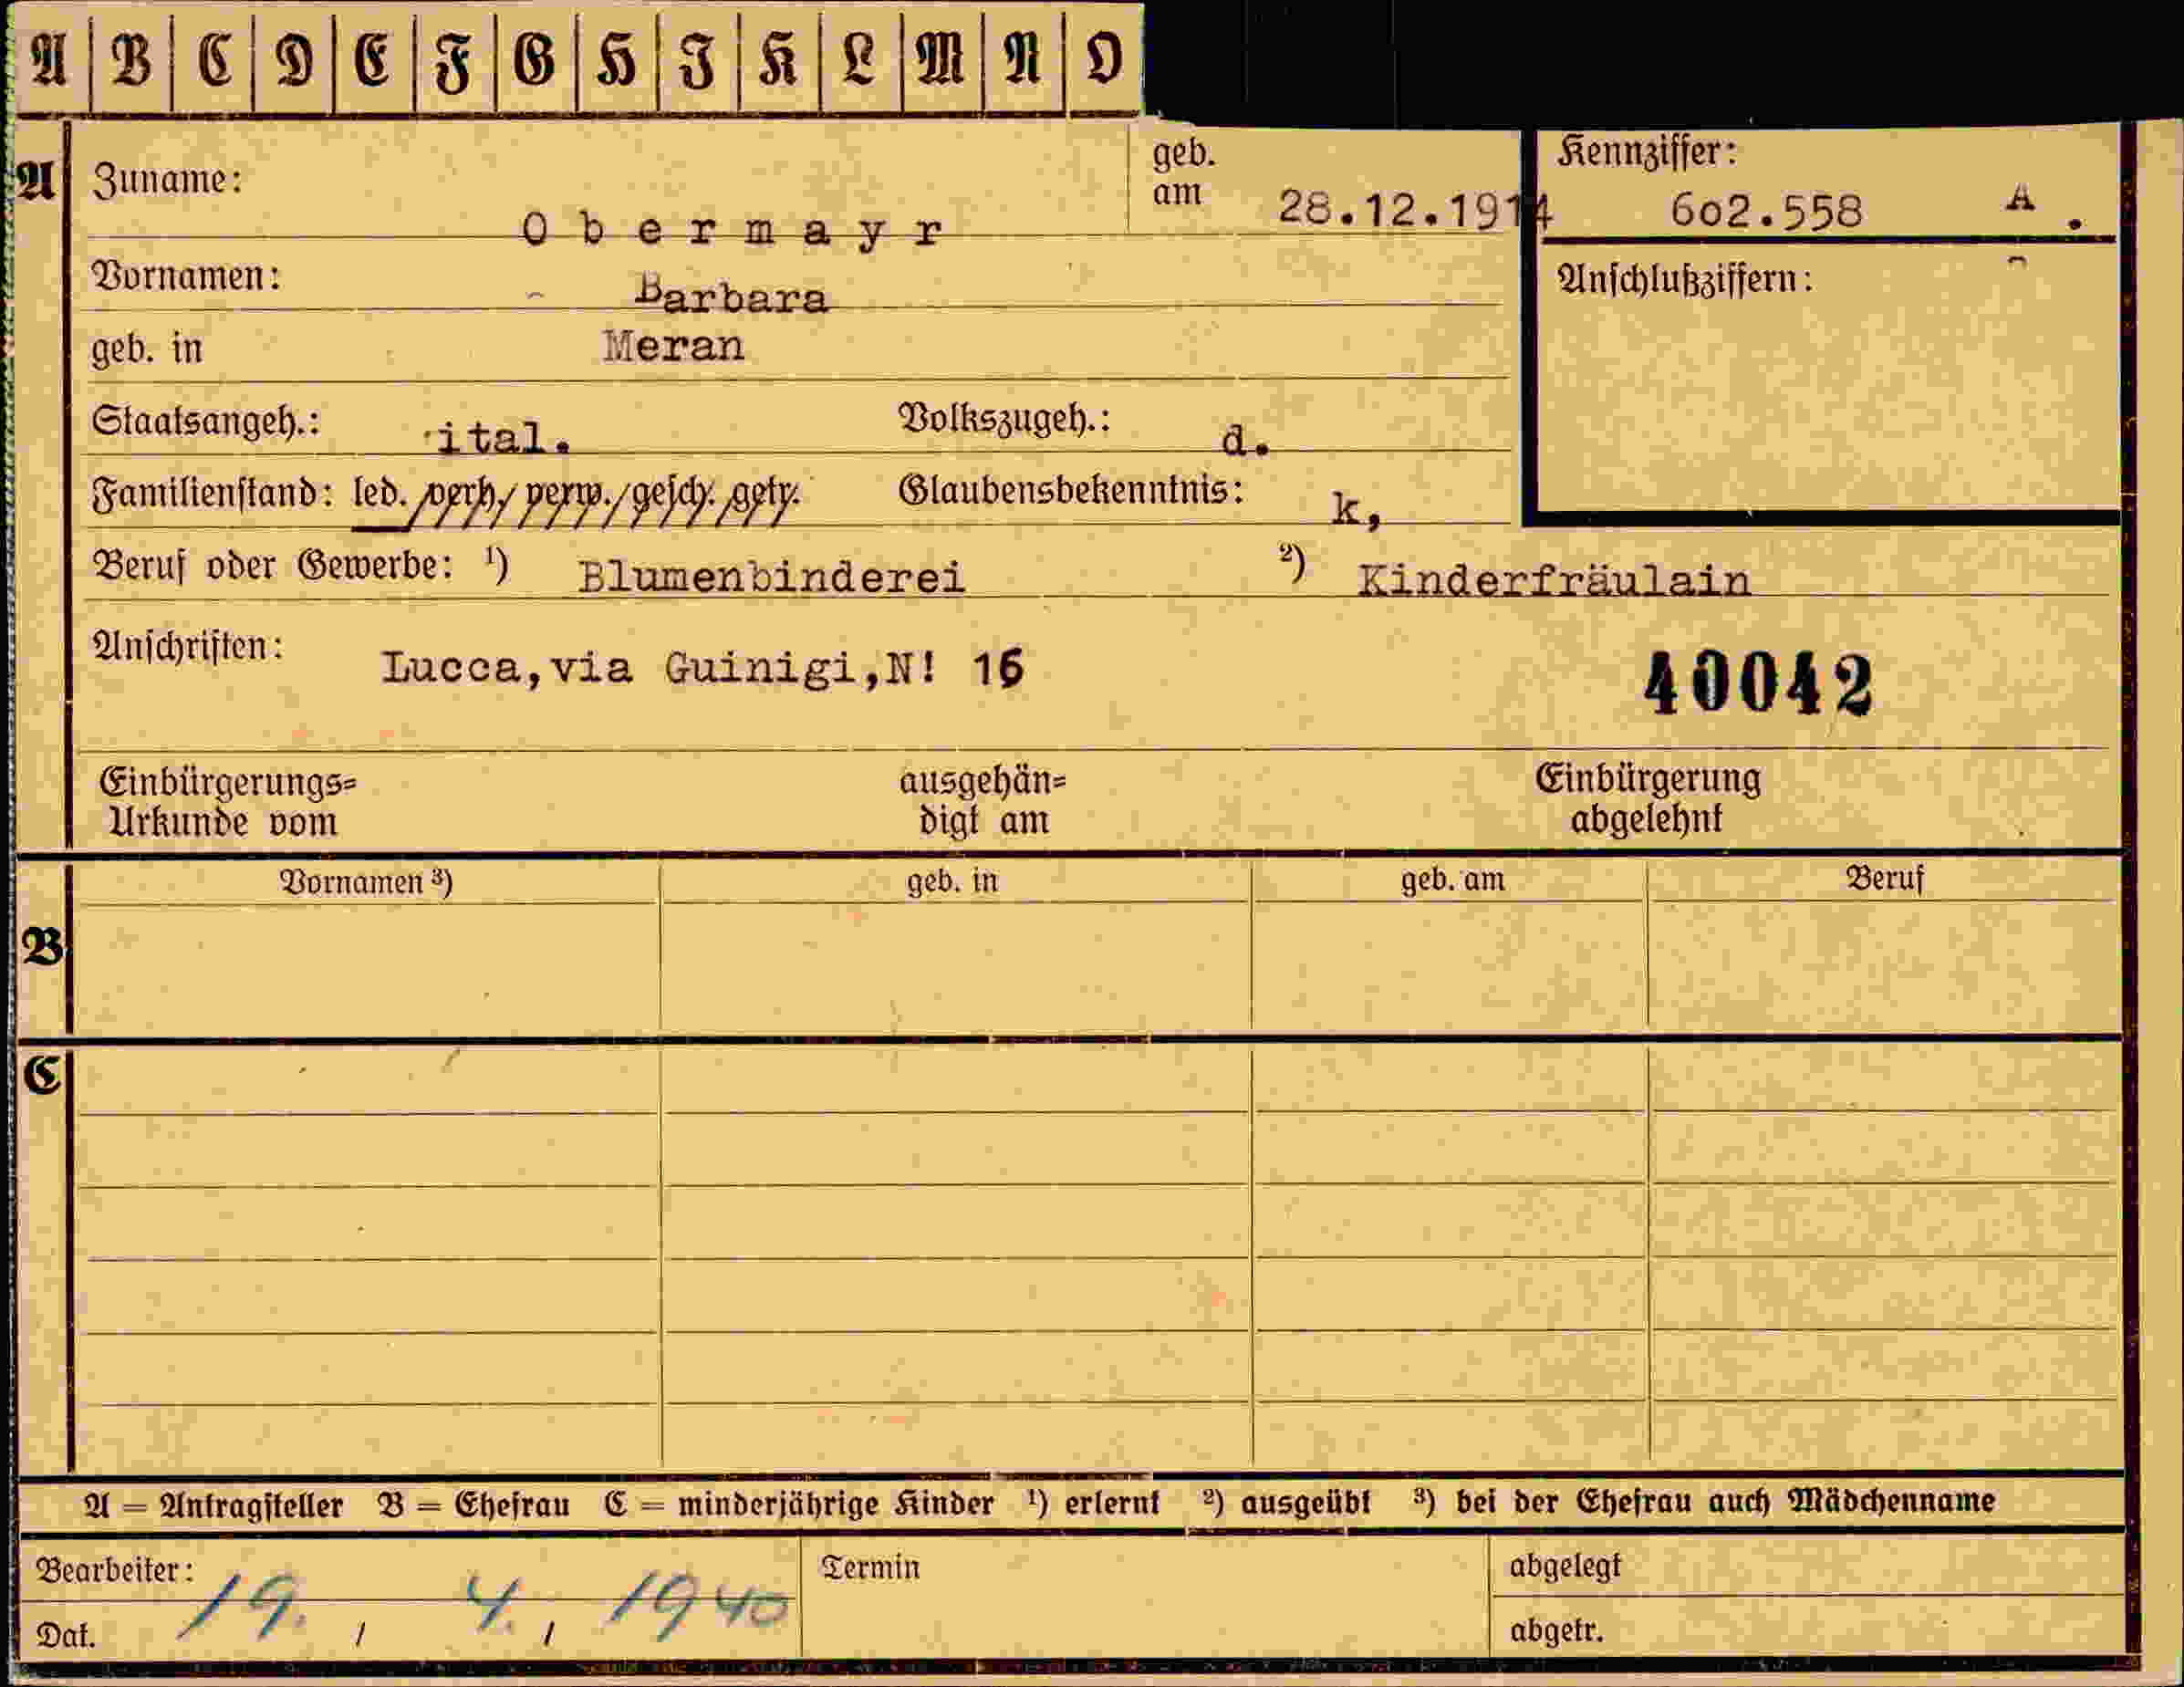 A B C D E F G H I K L M N O
A Zuname: O b e r m a y r geb. am 28.12.1914 Kennziffer: 602.558 A .
Vornamen: Barbara Anschlußziffern:
geb. in Meran
Staatsangeh.: ital. Volkszugeh.: d.
Familienstand: led./verh./verw./gesch. getr. Glaubensbekenntnis: k,
Beruf oder Gewerbe: ¹) Blumenbinderei ²) Kinderfräulain
Anschriften: Lucca,via Guinigi,N! 16 40042
Einbürgerungs= ausgehän= Einbürgerung
Urkunde vom digt am abgelehnt
Vornamen ³) geb. in geb. am Beruf
B
C
A = Antragsteller B = Ehefrau C = minderjährige Kinder ¹) erlernt ²) ausgeübt ³) bei der Ehefrau auch Mädchenname
Bearbeiter: Termin abgelegt
Dat. 19. / 4. / 1940 abgetr.